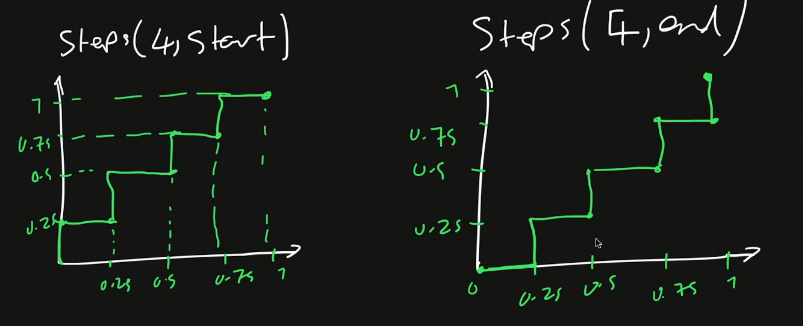 Steps(4,Start)
1
0.75
0.5
0.25
0.25 0.5 0.75 1
Steps(4,end)
1
0.75
0.5
0.25
0 0.25 0.5 0.75 1